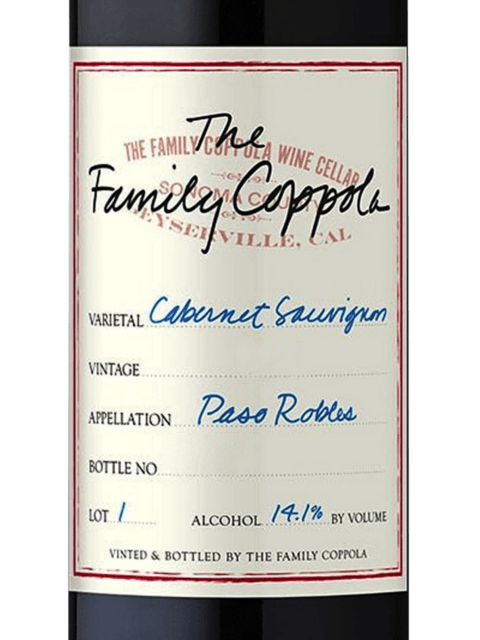 The
THE FAMILY COPPOLA WINE CELLAR
Family Coppola
SONOMA COUNTY
GEYSERVILLE, CAL
VARIETAL Cabernet Sauvignon
VINTAGE
APPELLATION Paso Robles
BOTTLE NO
LOT 1 ALCOHOL 14.1% BY VOLUME
VINTED & BOTTLED BY THE FAMILY COPPOLA